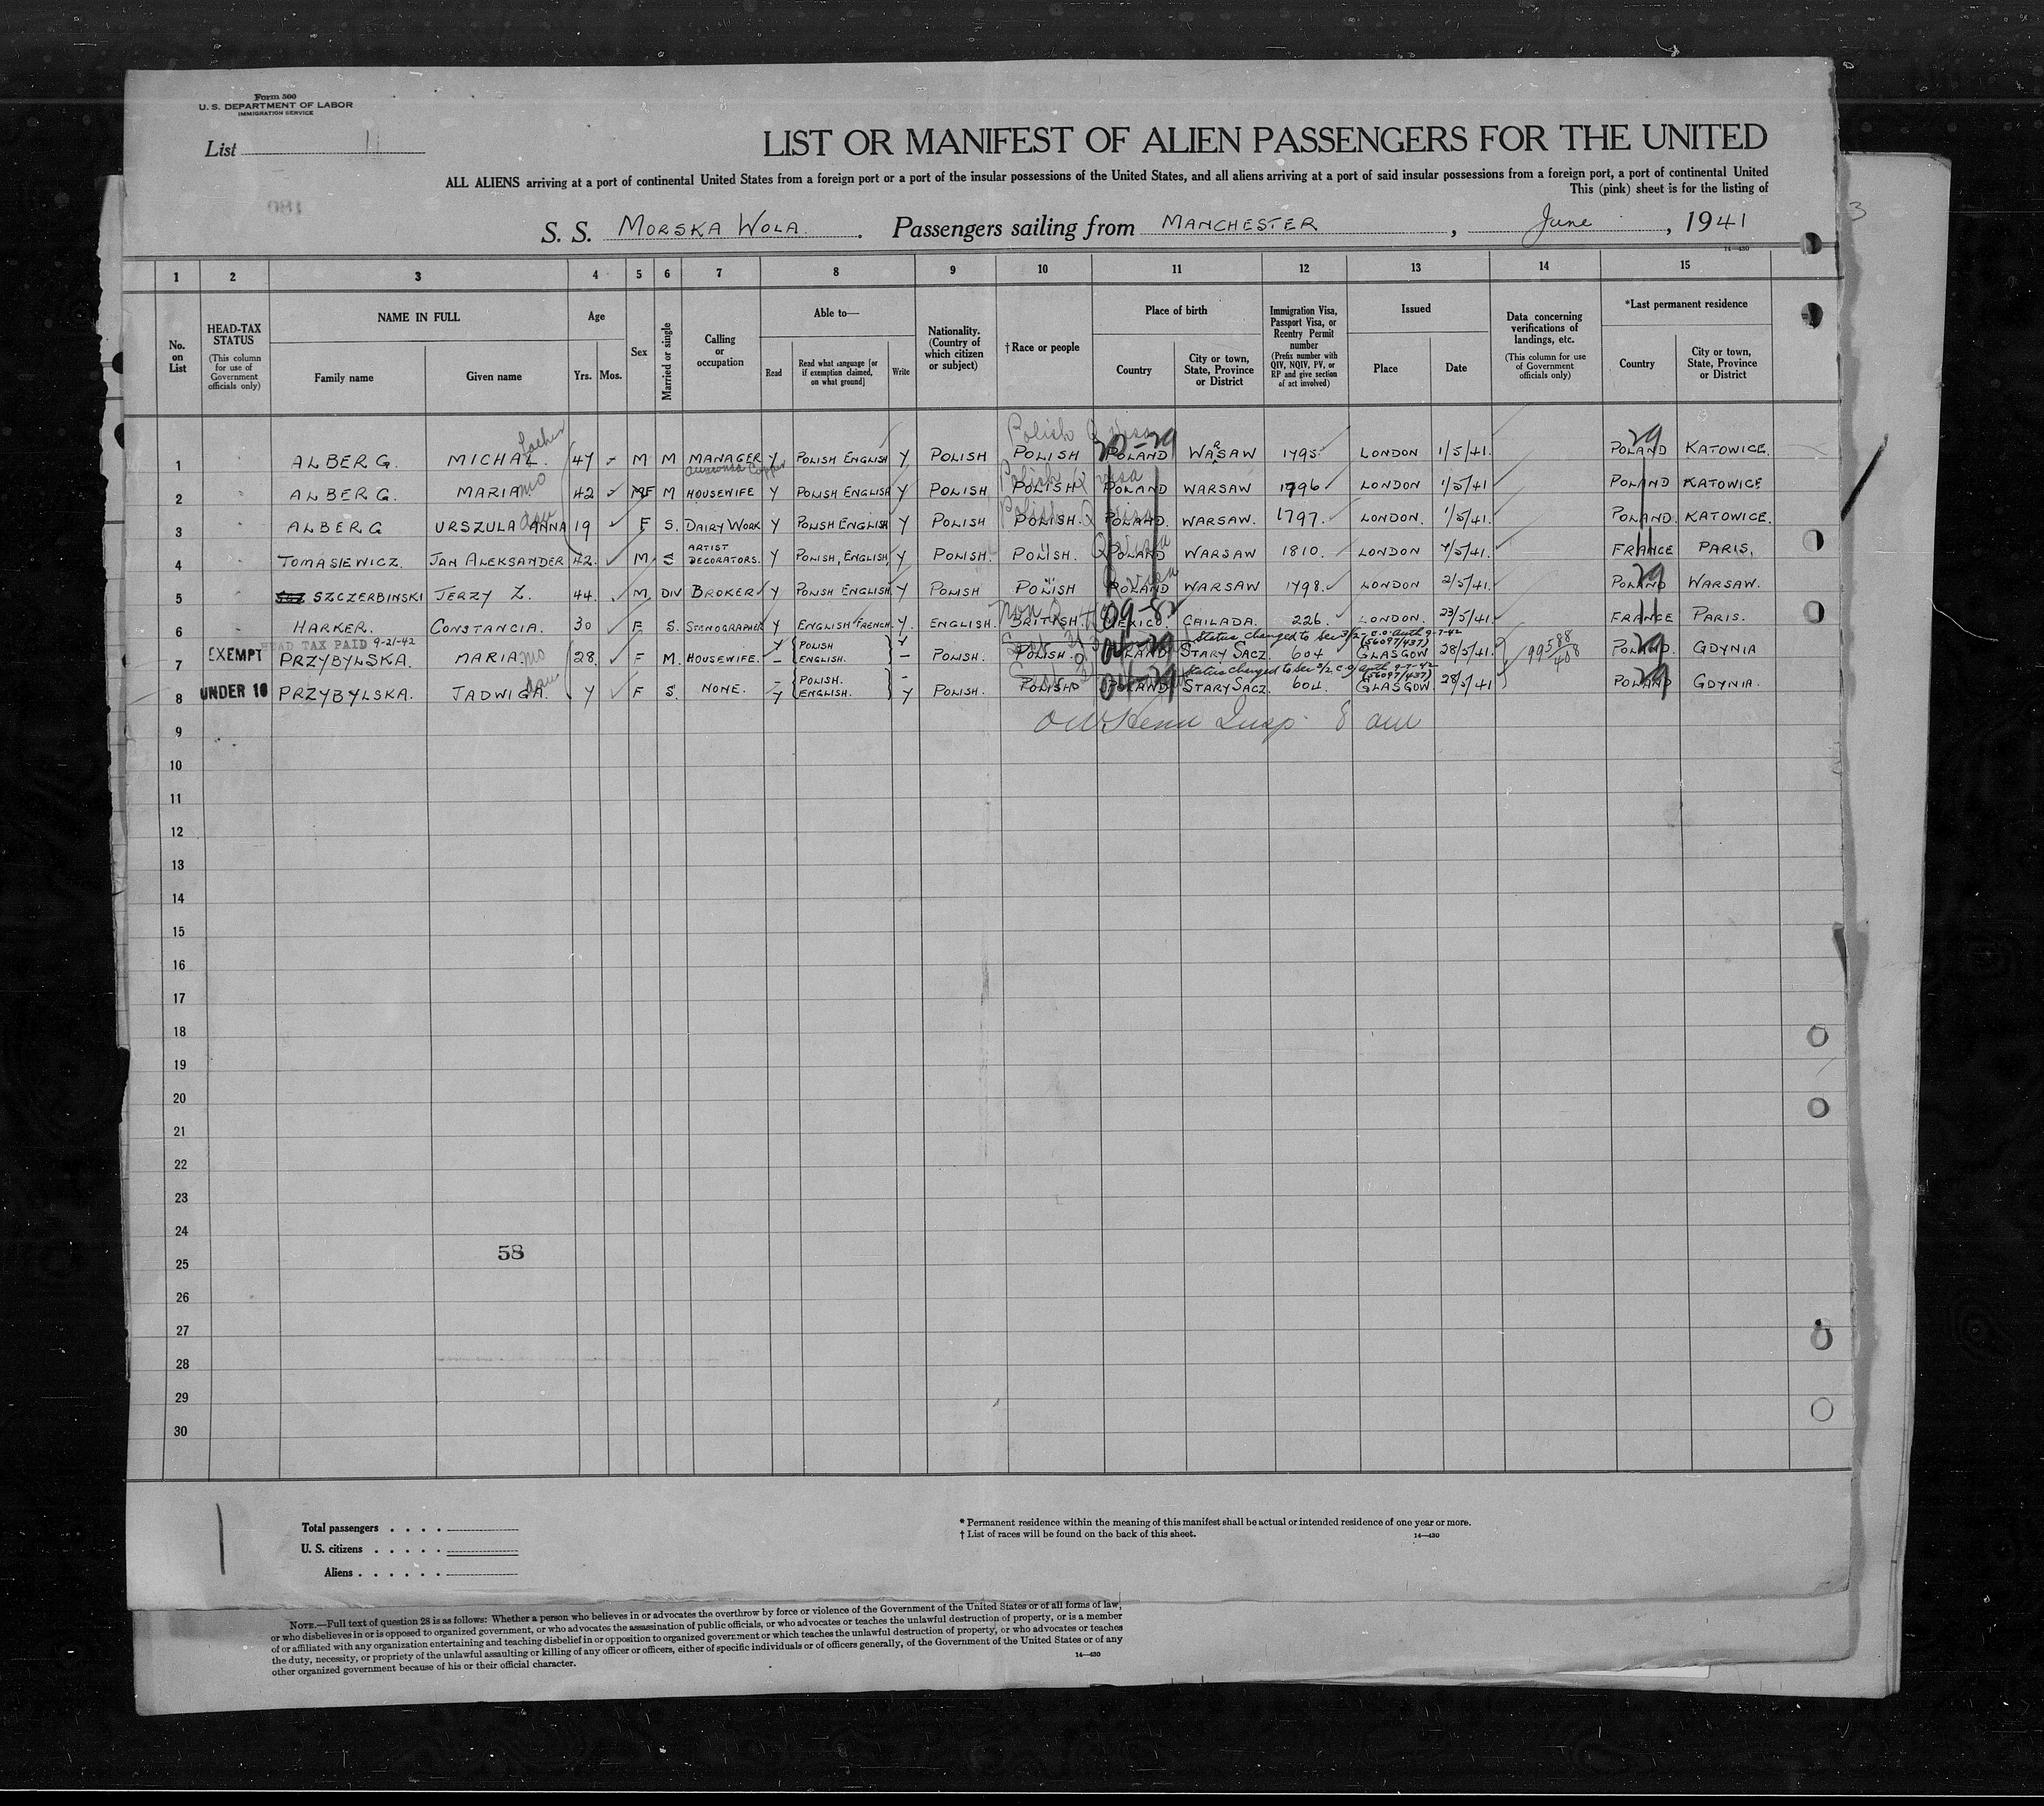 Form 500
U. S. DEPARTMENT OF LABOR
IMMIGRATION SERVICE
List 11
LIST OR MANIFEST OF ALIEN PASSENGERS FOR THE UNITED
ALL ALIENS arriving at a port of continental United States from a foreign port or a port of the insular possessions of the United States, and all aliens arriving at a port of said insular possessions from a foreign port, a port of continental United
This (pink) sheet is for the listing of
S. S. MORSKA WOLA. Passengers sailing from MANCHESTER, June, 1941
14—430
1 2 3 4 5 6 7 8 9 10 11 12 13 14 15
No. on List
HEAD-TAX STATUS (This column for use of Government officials only)
NAME IN FULL
Family name
Given name
Age
Yrs. Mos.
Sex
Married or single
Calling or occupation
Able to—
Read
Read what language [or if exemption claimed, on what ground]
Write
Nationality. (Country of which citizen or subject)
†Race or people
Place of birth
Country
City or town, State, Province or District
Immigration Visa, Passport Visa, or Reentry Permit number (Prefix number with QIV, NQIV, PV, or RP and give section of act involved)
Issued
Place
Date
Data concerning verifications of landings, etc. (This column for use of Government officials only)
*Last permanent residence
Country
City or town, State, Province or District
Polish Q Visa
1 ALBERG. MICHAL. 47 M M MANAGER Y POLISH ENGLISH Y POLISH POLISH POLAND WARSAW 1795 LONDON 1/5/41. POLAND KATOWICE.
2 ALBERG. MARIA mo 42 F M HOUSEWIFE Y POLISH ENGLISH Y POLISH POLISH POLAND WARSAW 1796 LONDON 1/5/41 POLAND KATOWICE
3 ALBERG URSZULA ANNA 19 F S. DAIRY WORK Y POLISH ENGLISH Y POLISH POLISH. POLAND. WARSAW. 1797. LONDON. 1/5/41. POLAND. KATOWICE.
4 TOMASIEWICZ. JAN ALEKSANDER 42. M S ARTIST DECORATORS. Y POLISH, ENGLISH, Y POLISH. POLISH. POLAND WARSAW 1810. LONDON 7/5/41. FRANCE PARIS,
5 SZCZERBINSKI JERZY Z. 44. M DIV BROKER Y POLISH ENGLISH Y POLISH POLISH POLAND WARSAW 1798. LONDON 2/5/41. POLAND WARSAW.
6 HARKER. CONSTANCIA. 30 F S. STENOGRAPHER Y ENGLISH FRENCH. Y. ENGLISH. BRITISH. MEXICO. CAILADA. 226. LONDON. 23/5/41. FRANCE PARIS.
HEAD TAX PAID 9-21-42
Status changed to Sec 3/2 C.O. Auth 9-7-42 (56097/437)
7 EXEMPT PRZYBYLSKA. MARIA mo 28. F M. HOUSEWIFE. Y – {POLISH ENGLISH.} Y – POLISH. POLISH. POLAND STARY SACZ. 604 GLASGOW 28/5/41. 99588/408 POLAND. GDYNIA
Status changed to Sec 3/2 C.O. Auth 9-7-42 (56097/437)
8 UNDER 16 PRZYBYLSKA. JADWIGA. Y F S. NONE. – Y {POLISH. ENGLISH.} – Y POLISH. POLISH POLAND STARY SACZ. 604. GLASGOW 28/5/41 POLAND GDYNIA.
9
10
11
12
13
14
15
16
17
18
19
20
21
22
23
24
58
25
26
27
28
29
30
Total passengers
U. S. citizens
Aliens
* Permanent residence within the meaning of this manifest shall be actual or intended residence of one year or more.
† List of races will be found on the back of this sheet. 14—430
NOTE.—Full text of question 28 is as follows: Whether a person who believes in or advocates the overthrow by force or violence of the Government of the United States or of all forms of law,
or who disbelieves in or is opposed to organized government, or who advocates the assassination of public officials, or who advocates or teaches the unlawful destruction of property, or is a member
of or affiliated with any organization entertaining and teaching disbelief in or opposition to organized government or which teaches the unlawful destruction of property, or who advocates or teaches
the duty, necessity, or propriety of the unlawful assaulting or killing of any officer or officers, either of specific individuals or of officers generally, of the Government of the United States or of any
other organized government because of his or their official character.
14—430